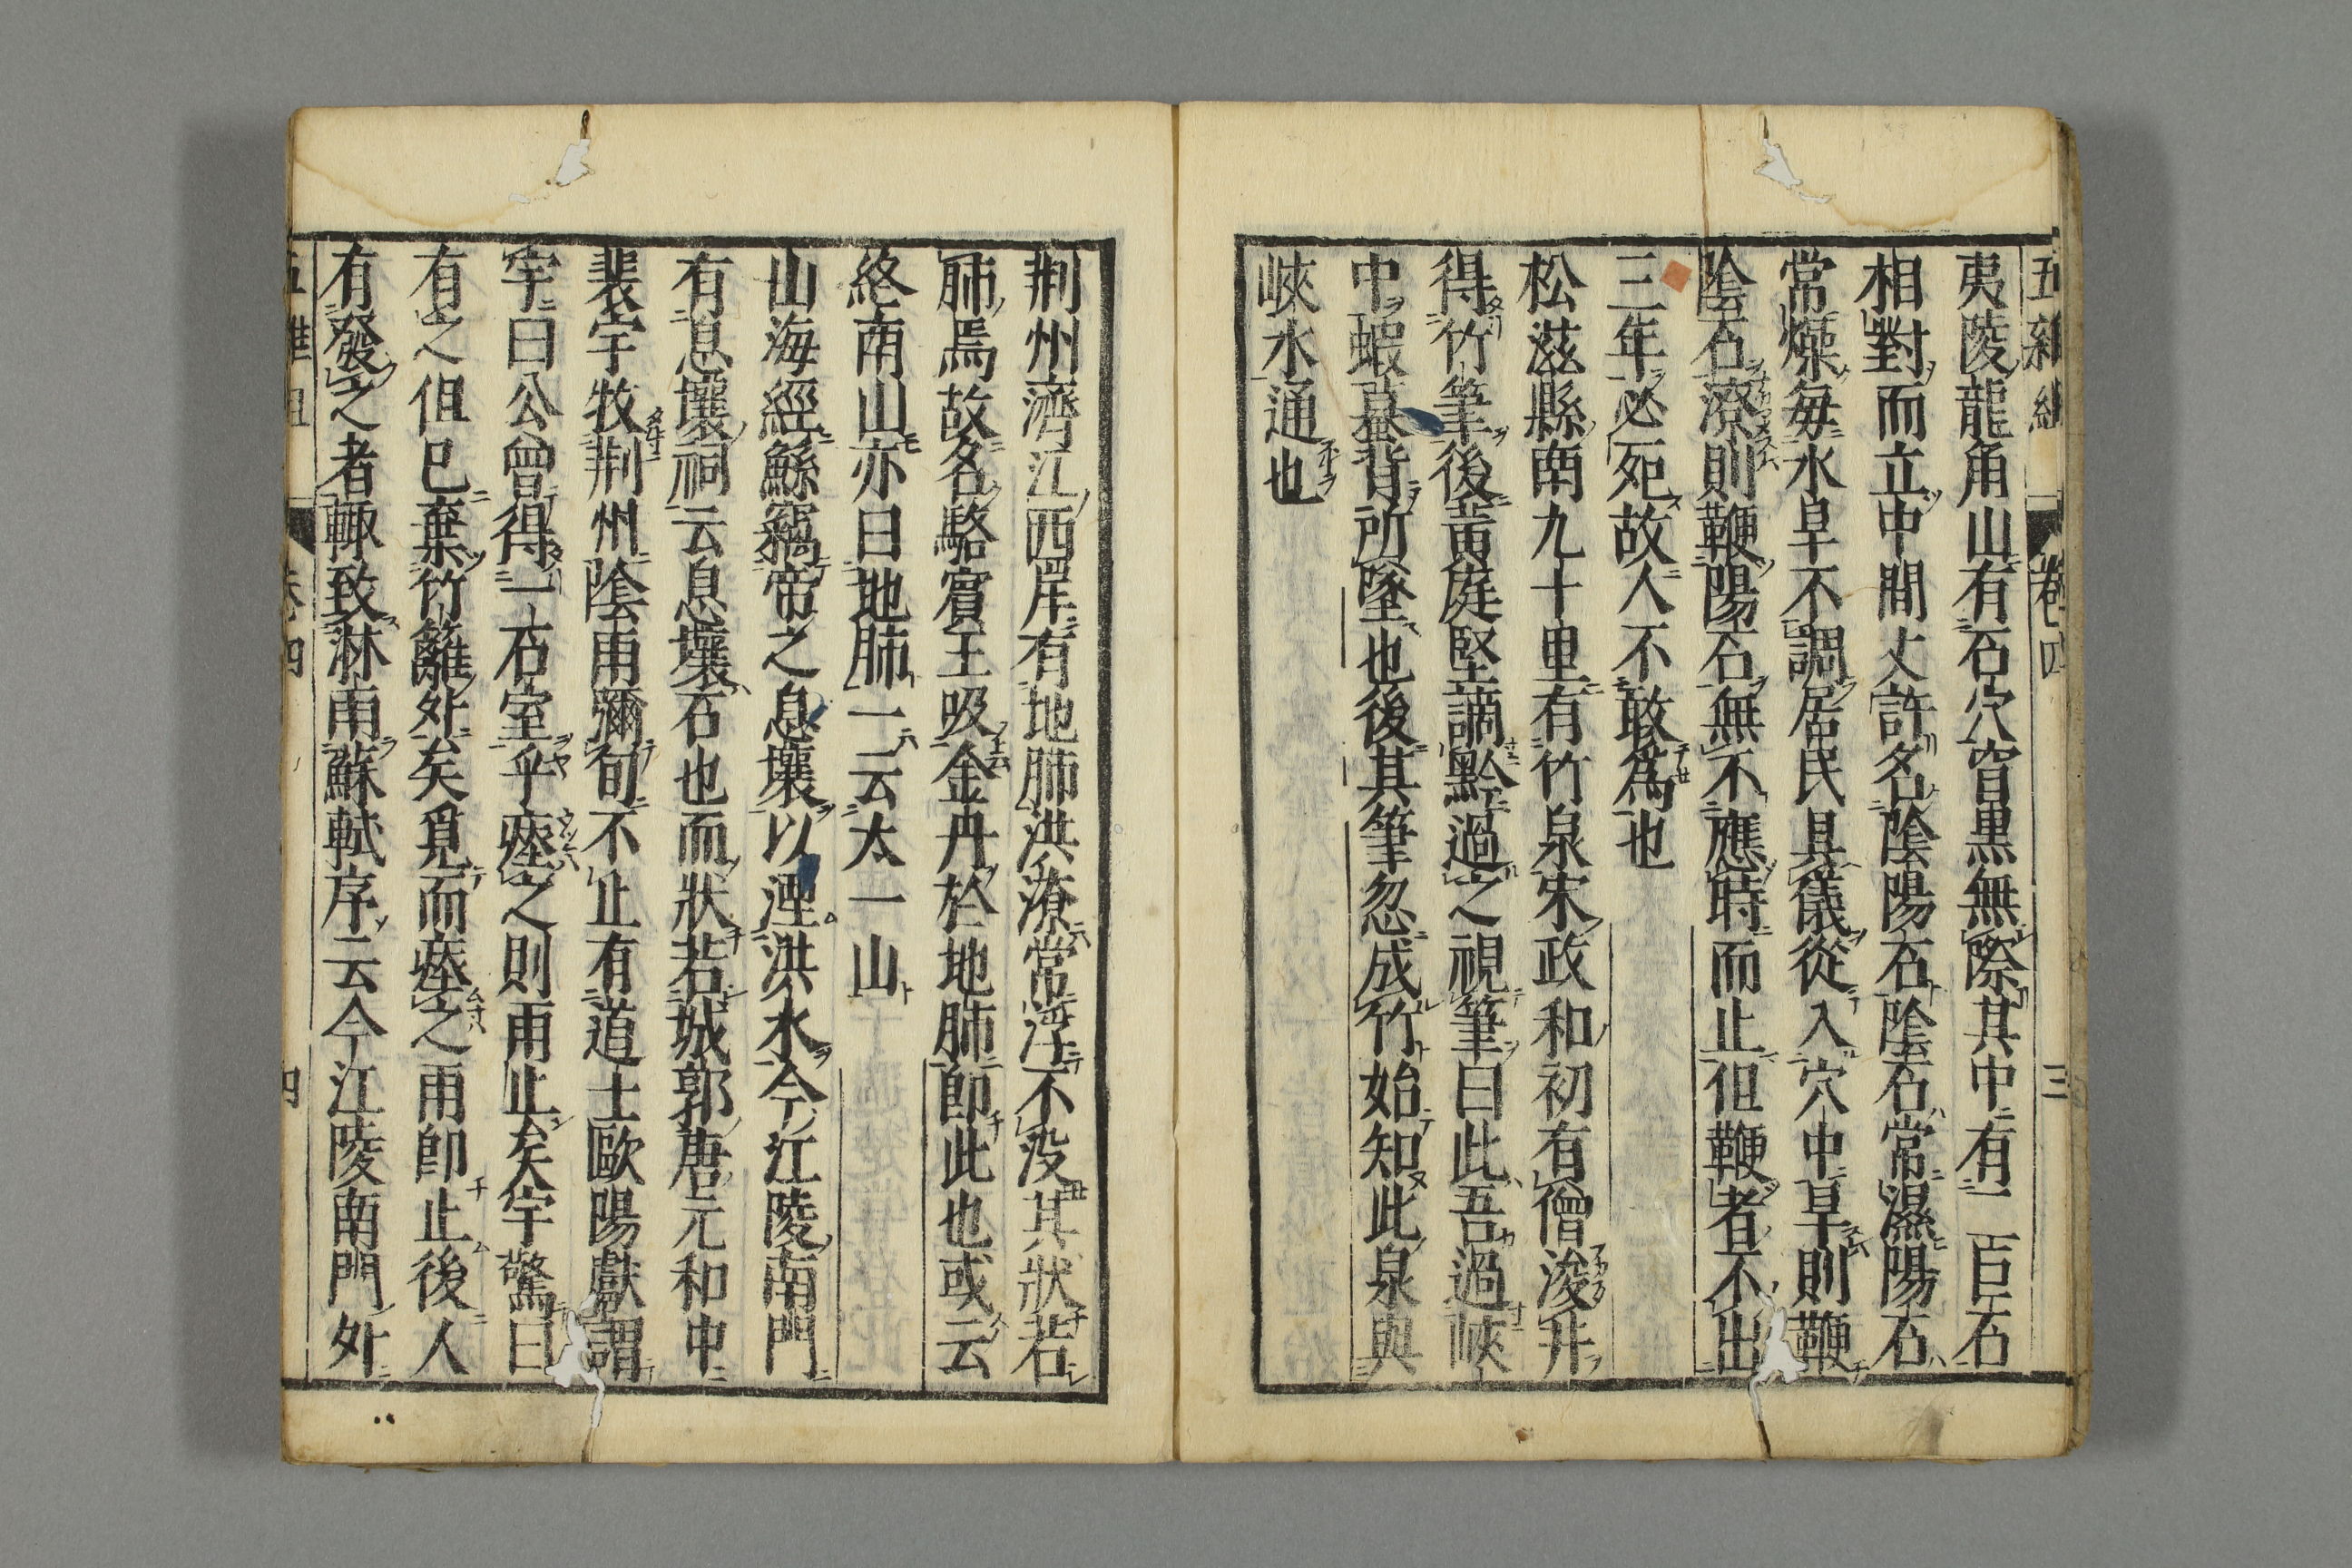 五雜組 卷四 三
夷陵龍角山有石穴窅黒無際其中有二巨石
相對而立中間丈許名陰陽石陰石常濕陽石
常燥每水旱不調居民具儀從入穴中旱則鞭
陰石潦則鞭陽石無不應時而止但鞭者不出
三年必死故人不敢爲也
松滋縣南九十里有竹泉宋政和初有僧浚井
得竹筆後黃庭堅謫黔過之視筆曰此吾過峽
中蝦蟇背所墜也後其筆忽成竹始知此泉與
峽水通也
荆州濟江西岸有地肺洪潦常浮不没其狀若
肺焉故名駱賓王吸金丹於地肺卽此也或云
終南山亦曰地肺一云太一山
山海經鯀竊帝之息壤以湮洪水今江陵南門
有息壤祠云息壤石也而狀若城郭唐元和中
裴宇牧荆州陰雨彌旬不止有道士歐陽獻謂
宇曰公曾得一石室乎瘞之則雨止矣宇驚曰
有之但已棄竹籬外矣覓而瘞之雨卽止後人
有發之者輙致淋雨蘇軾序云今江陵南門外
五雜組 卷四 四